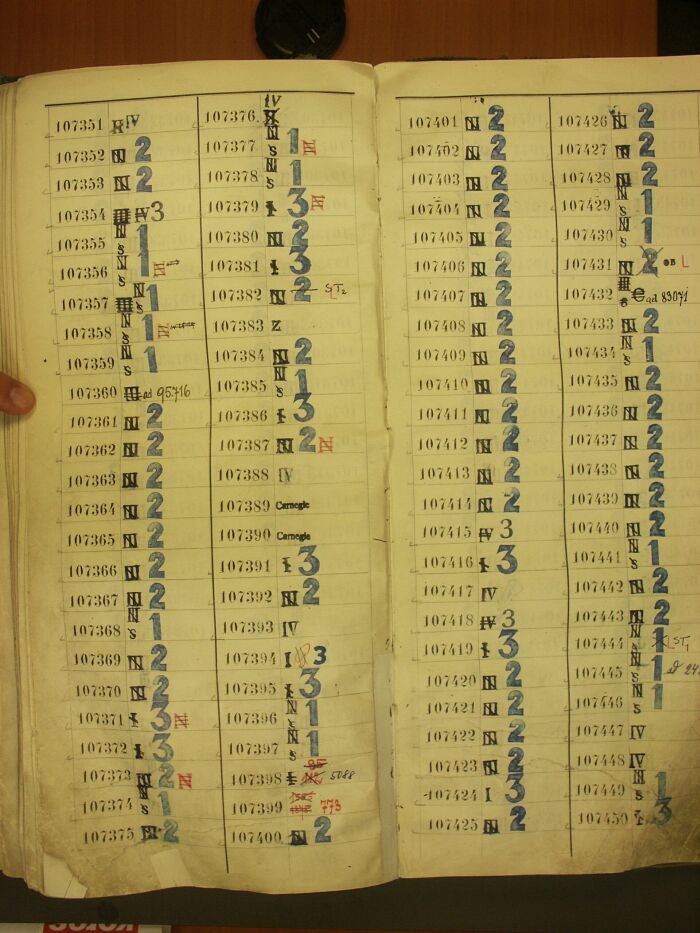 107351 IV
107352 N 2
107353 N 2
107354 IV 3
107355 N s 1
107356 N s 1 N
107357 III N s 1
107358 N s 1 N
107359 N s 1
107360 III ad 95716
107361 N 2
107362 N 2
107363 N 2
107364 N 2
107365 N 2
107366 N 2
107367 N 2
107368 N s 1
107369 N 2
107370 N 2
107371 I 3 N
107372 I 3
107373 N 2 N
107374 N s 1
107375 N 2
107376 IV
107377 N s 1 N
107378 N s 1
107379 I 3 N
107380 N 2
107381 I 3
107382 N 2 ST2
107383 Z
107384 N 2
107385 N s 1
107386 I 3
107387 N 2 N
107388 IV
107389 Carnegie
107390 Carnegie
107391 I 3
107392 N 2
107393 IV
107394 I 3
107395 I 3
107396 N s 1
107397 N s 1
107398 I 5088
107399 773
107400 N 2
107401 N 2
107402 N 2
107403 N 2
107404 N 2
107405 N 2
107406 N 2
107407 N 2
107408 N 2
107409 N 2
107410 N 2
107411 N 2
107412 N 2
107413 N 2
107414 N 2
107415 IV 3
107416 I 3
107417 IV
107418 IV 3
107419 I 3
107420 N 2
107421 N 2
107422 N 2
107423 N 2
107424 I 3
107425 N 2
107426 N 2
107427 N 2
107428 N 2
107429 N s 1
107430 N s 1
107431 N 2 L
107432 III s ad 83071
107433 N 2
107434 N s 1
107435 N 2
107436 N 2
107437 N 2
107438 N 2
107439 N 2
107440 N 2
107441 N s 1
107442 N 2
107443 N 2
107444 N s 1 L ST1
107445 N s 1
107446 N s 1
107447 IV
107448 IV
107449 N s 1
107450 I 3